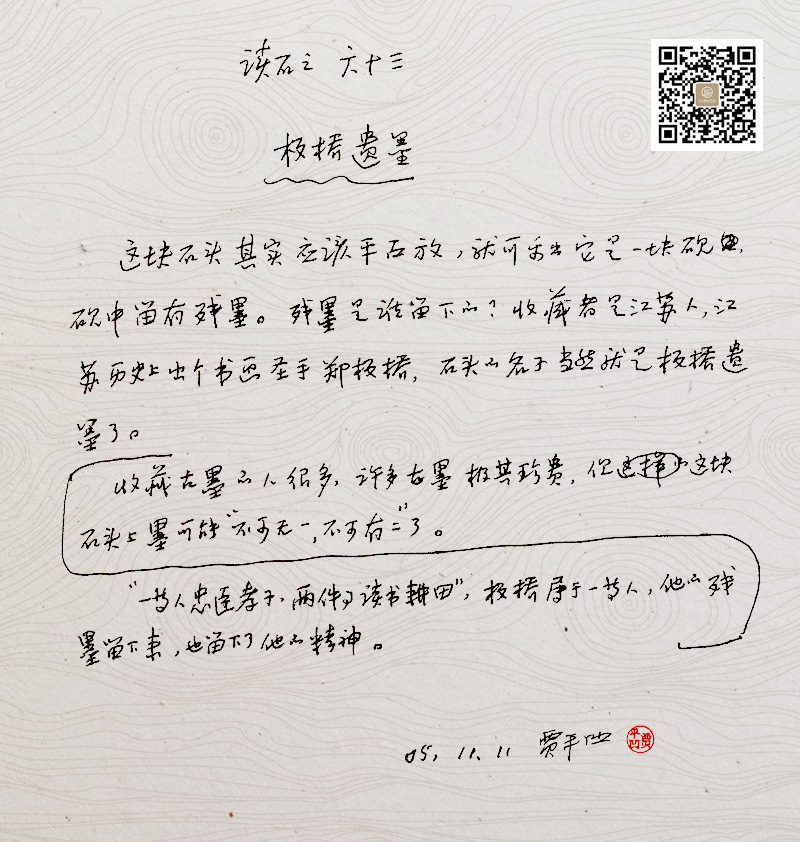 读石之 六十三
板桥遗墨
这块石头其实应该平石放，就可看出它是一块砚，
砚中留有残墨。残墨是谁留下的？收藏者是江苏人，江
苏历史上出个书画圣手郑板桥，石头的名子当然就是板桥遗
墨了。
收藏古墨的人很多，许多古墨极其珍贵，但这块
石头上墨可能“不可无一，不可有二”了。
“一等人忠臣孝子，两件事读书耕田”，板桥属于一等人，他的残
墨留下来，也留下了他的精神。
05，11.11 贾平凹
贾平凹